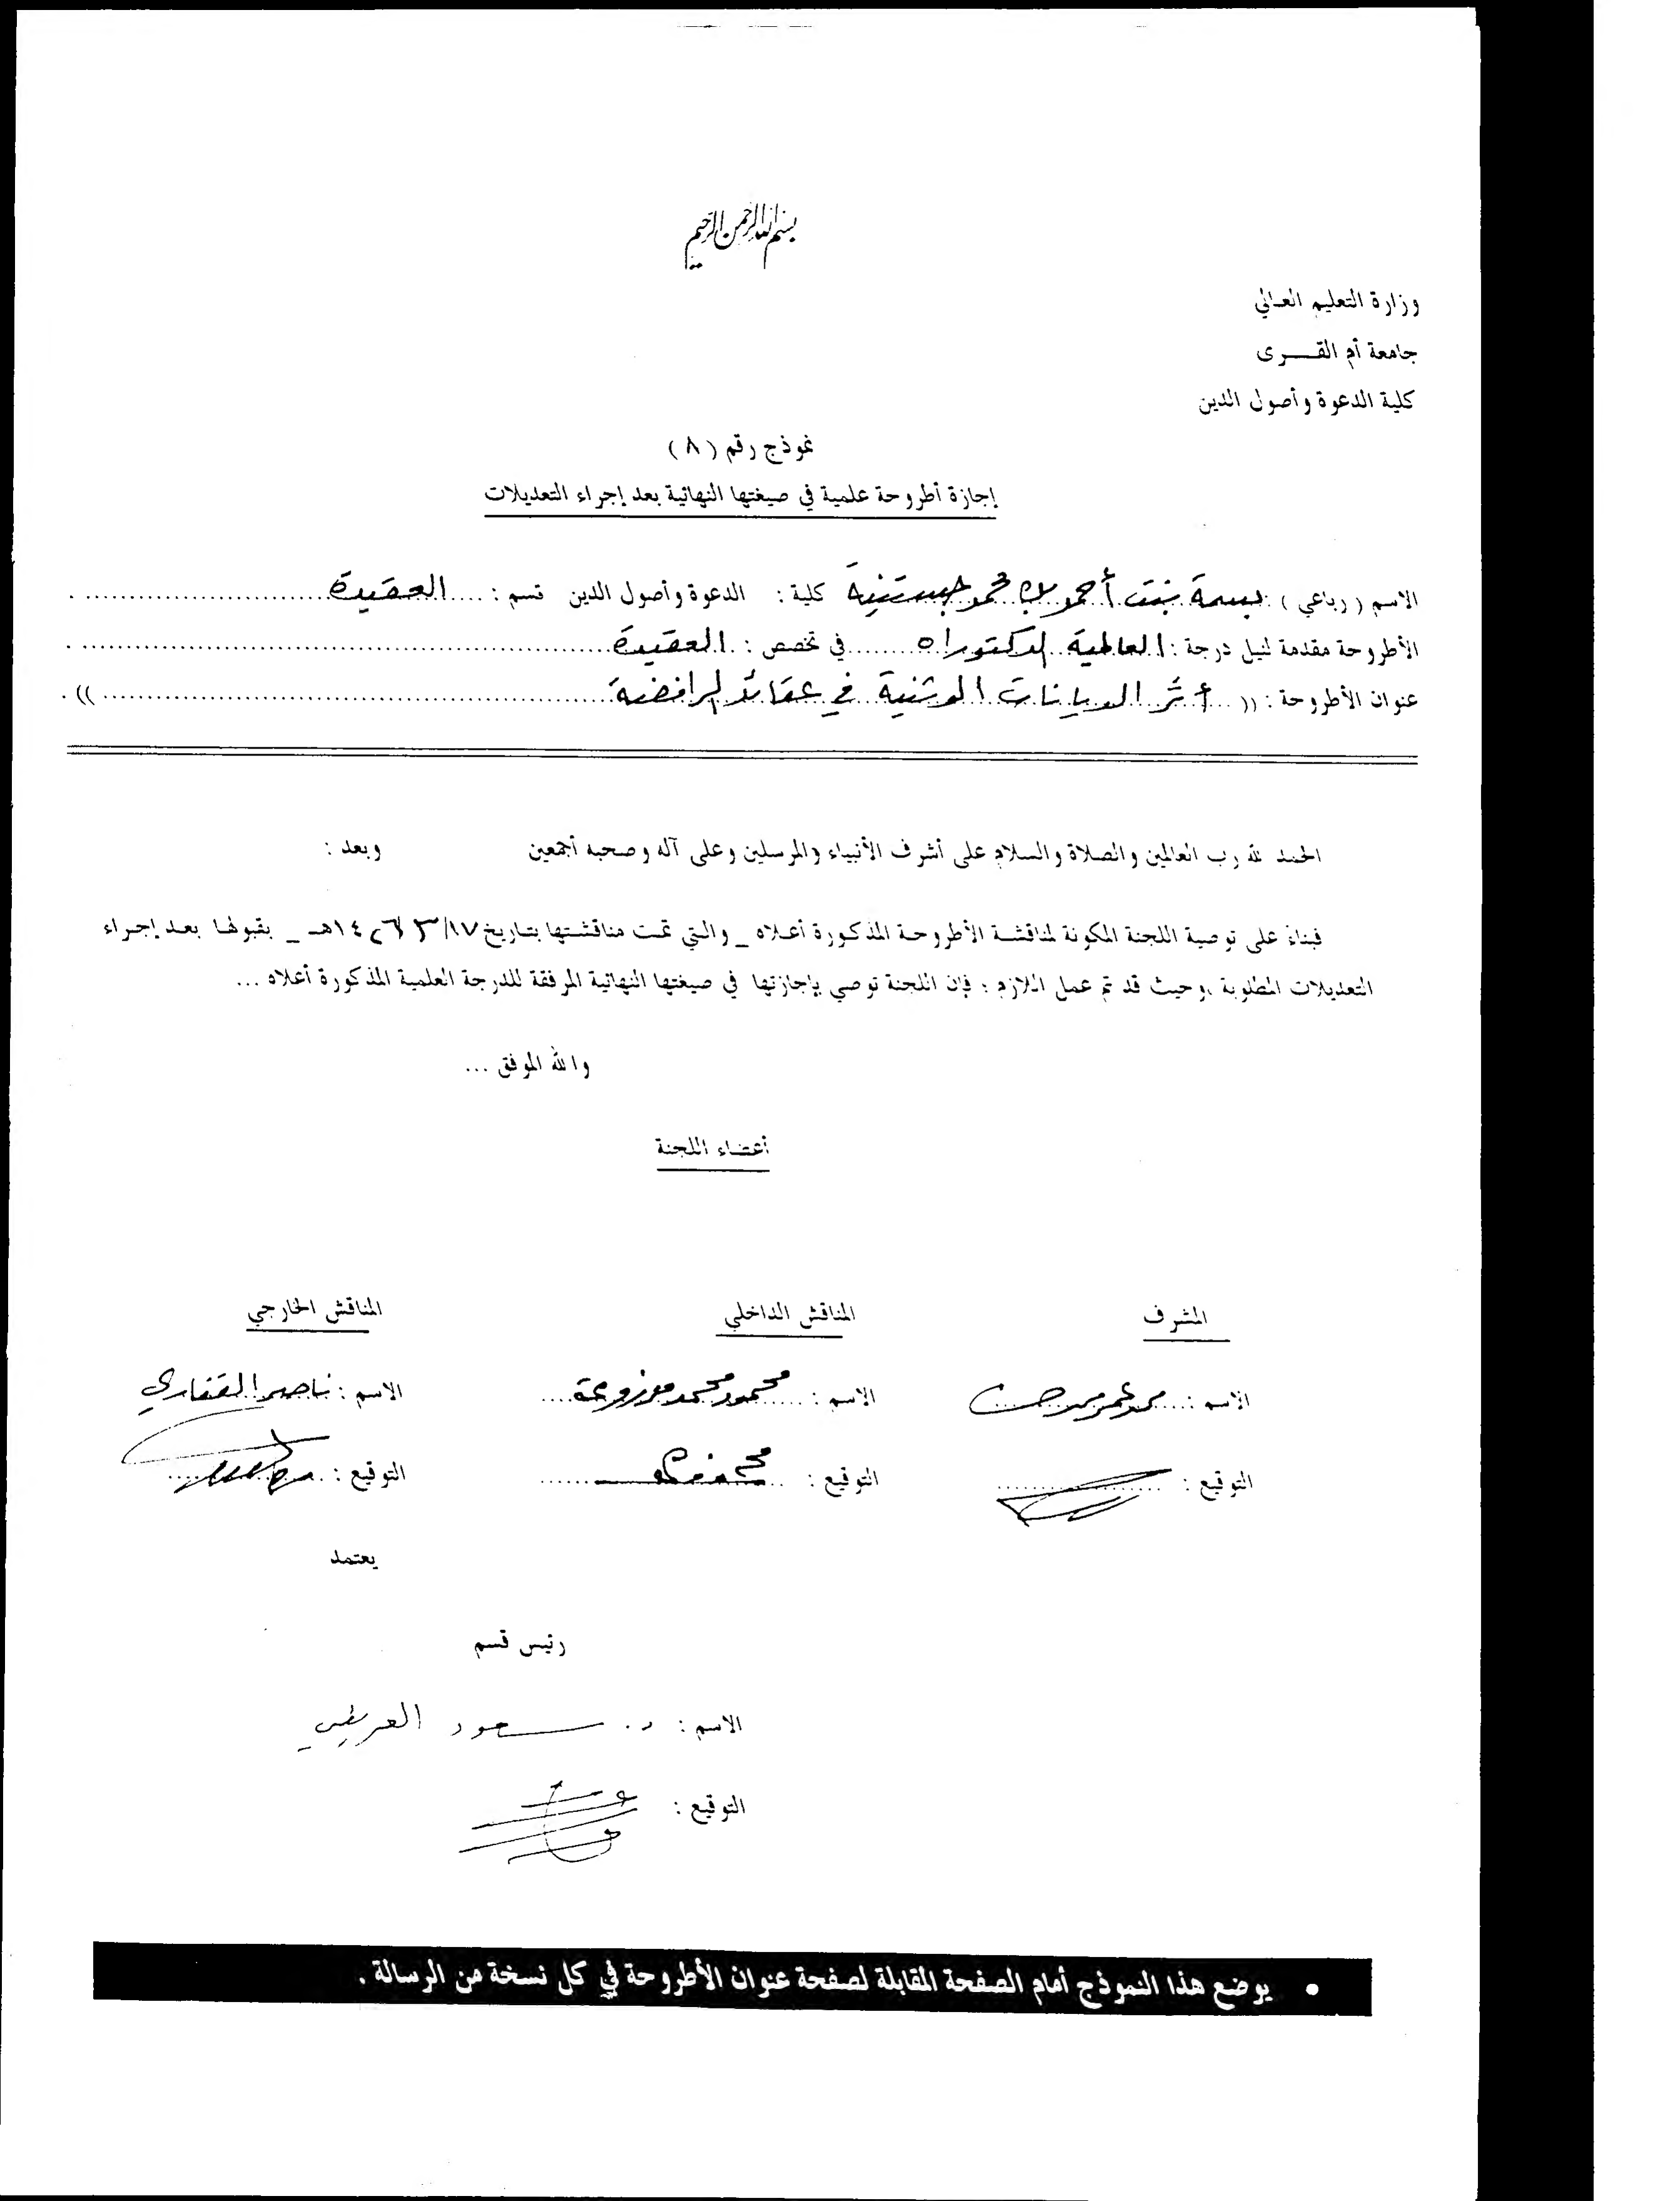 بسم الله الرحمن الرحيم
وزارة التعليم العالي
جامعة أم القـــرى
كلية الدعوة وأصول الدين
نموذج رقم ( ٨ )
إجازة أطروحة علمية في صيغتها النهائية بعد إجراء التعديلات
الاسم ( رباعي ) : بسمة بنت أحمد محمد جستنية كلية : الدعوة وأصول الدين قسم : العقيدة
الأطروحة مقدمة لنيل درجة : العالمية الدكتوراه في تخصص : العقيدة
عنوان الأطروحة : (( أثر الديانات الوثنية في عقائد الرافضة )) .
الحمد لله رب العالمين والصلاة والسلام على أشرف الأنبياء والمرسلين وعلى آله وصحبه أجمعين وبعد :
فبناءً على توصية اللجنة المكونة لمناقشة الأطروحة المذكورة أعلاه _ والتي تمت مناقشتها بتاريخ ١٧/ ٣/ ١٤٢٦هـ _ بقبولها بعد إجراء
التعديلات المطلوبة ، وحيث قد تم عمل اللازم ؛ فإن اللجنة توصي بإجازتها في صيغتها النهائية المرفقة للدرجة العلمية المذكورة أعلاه ...
والله الموفق ...
أعضاء اللجنة
المشرف المناقش الداخلي المناقش الخارجي
الاسم : الاسم : محمود محمد مزروعة الاسم : ناصر القفاري
التوقيع : التوقيع : التوقيع :
يعتمد
رئيس قسم
الاسم : د. سعود العريفي
التوقيع :
• يوضع هذا النموذج أمام الصفحة المقابلة لصفحة عنوان الأطروحة في كل نسخة من الرسالة .